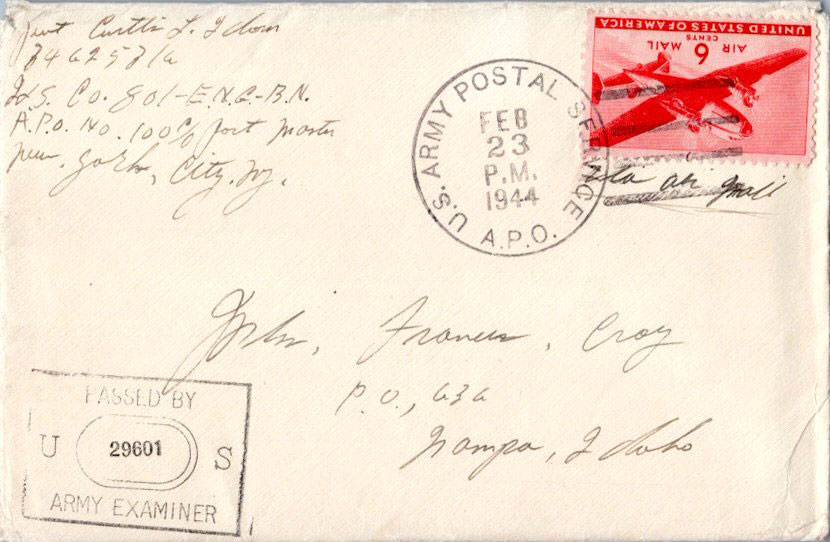 Pvt Curtis L. Idom
34625316
H&S. Co. 801-ENG-BN.
A.P.O. No. 100 c/o Post Master
New York, City. Ny.
U.S. ARMY POSTAL SERVICE
FEB
23
P.M.
1944
A.P.O.
UNITED STATES OF AMERICA
6 CENTS
AIR MAIL
Via air Mail
Francis, Croy
P.O., 636
Nampa, Idaho
PASSED BY
U 29601 S
ARMY EXAMINER